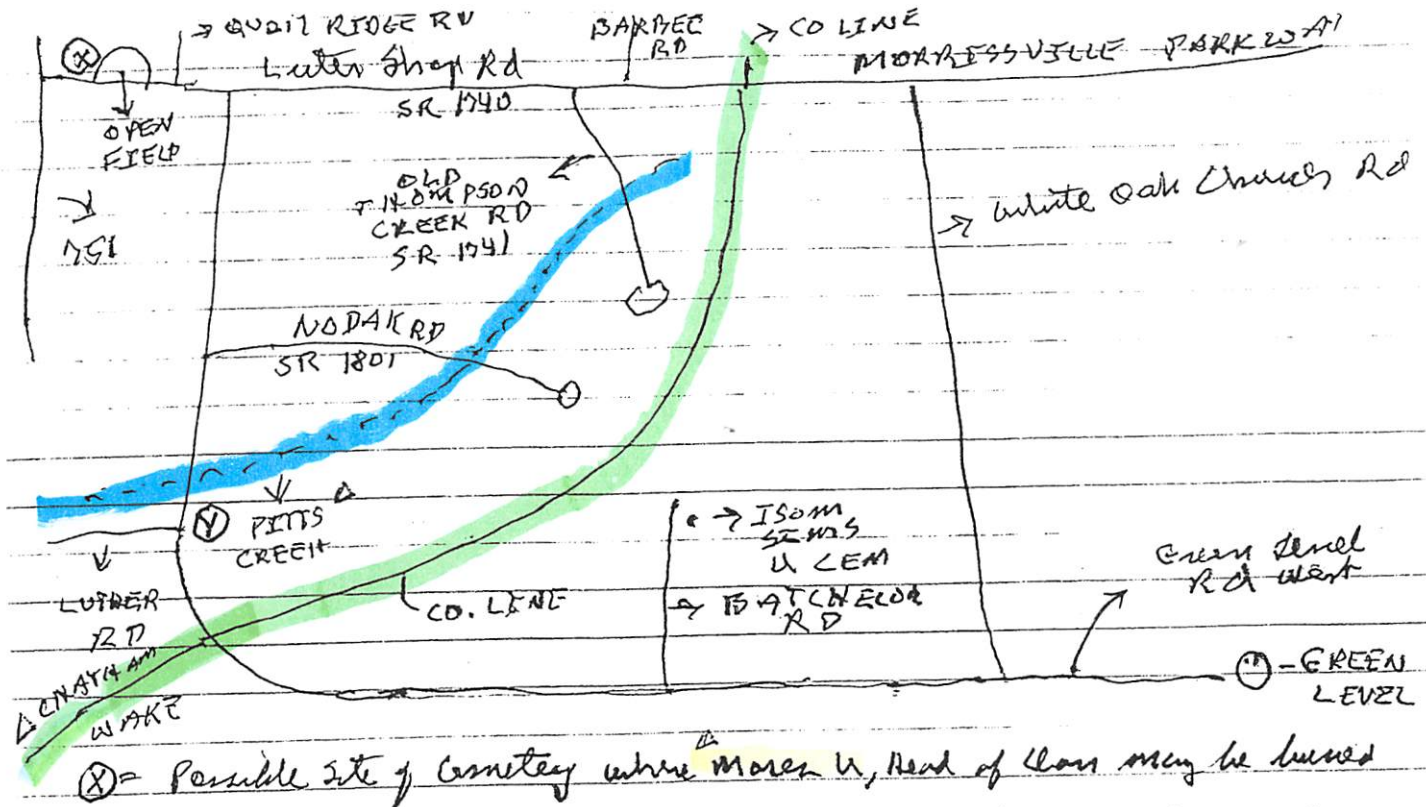 X
→ QUAIL RIDGE RD
Luter Shop Rd
SR 1740
BARBEE
RD
→ CO LINE
MORRISSVILLE PARKWAY
OPEN
FIELD
751
OLD
THOMPSON
CREEK RD
SR 1741
→ White Oak Church Rd
NODAK RD
SR 1801
Y
PITTS
CREEK
LUTHER
RD
CO. LINE
→ ISOM
SEMS
U CEM
→ BATCHELOR
RD
Green Level
Rd West
- GREEN
LEVEL
CHATHAM
WAKE
X = Possible Site of Cemetery where Moses U, Head of Clan may be buried